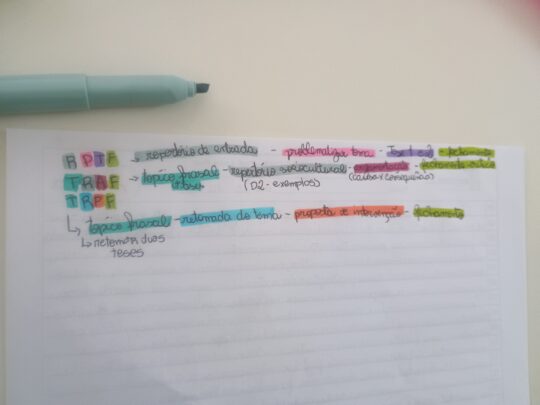 RPTF → repertório de entrada - problematizar tema - tese 1 e 2 - fechamento
TRAF → tópico frasal - repertório sociocultural - argumentação - fechamento crítico
tese (D2 - exemplos) (causa x consequência)
TRPF
↳ tópico frasal - retomada do tema - proposta de intervenção - fechamento
↳ retomar duas
teses